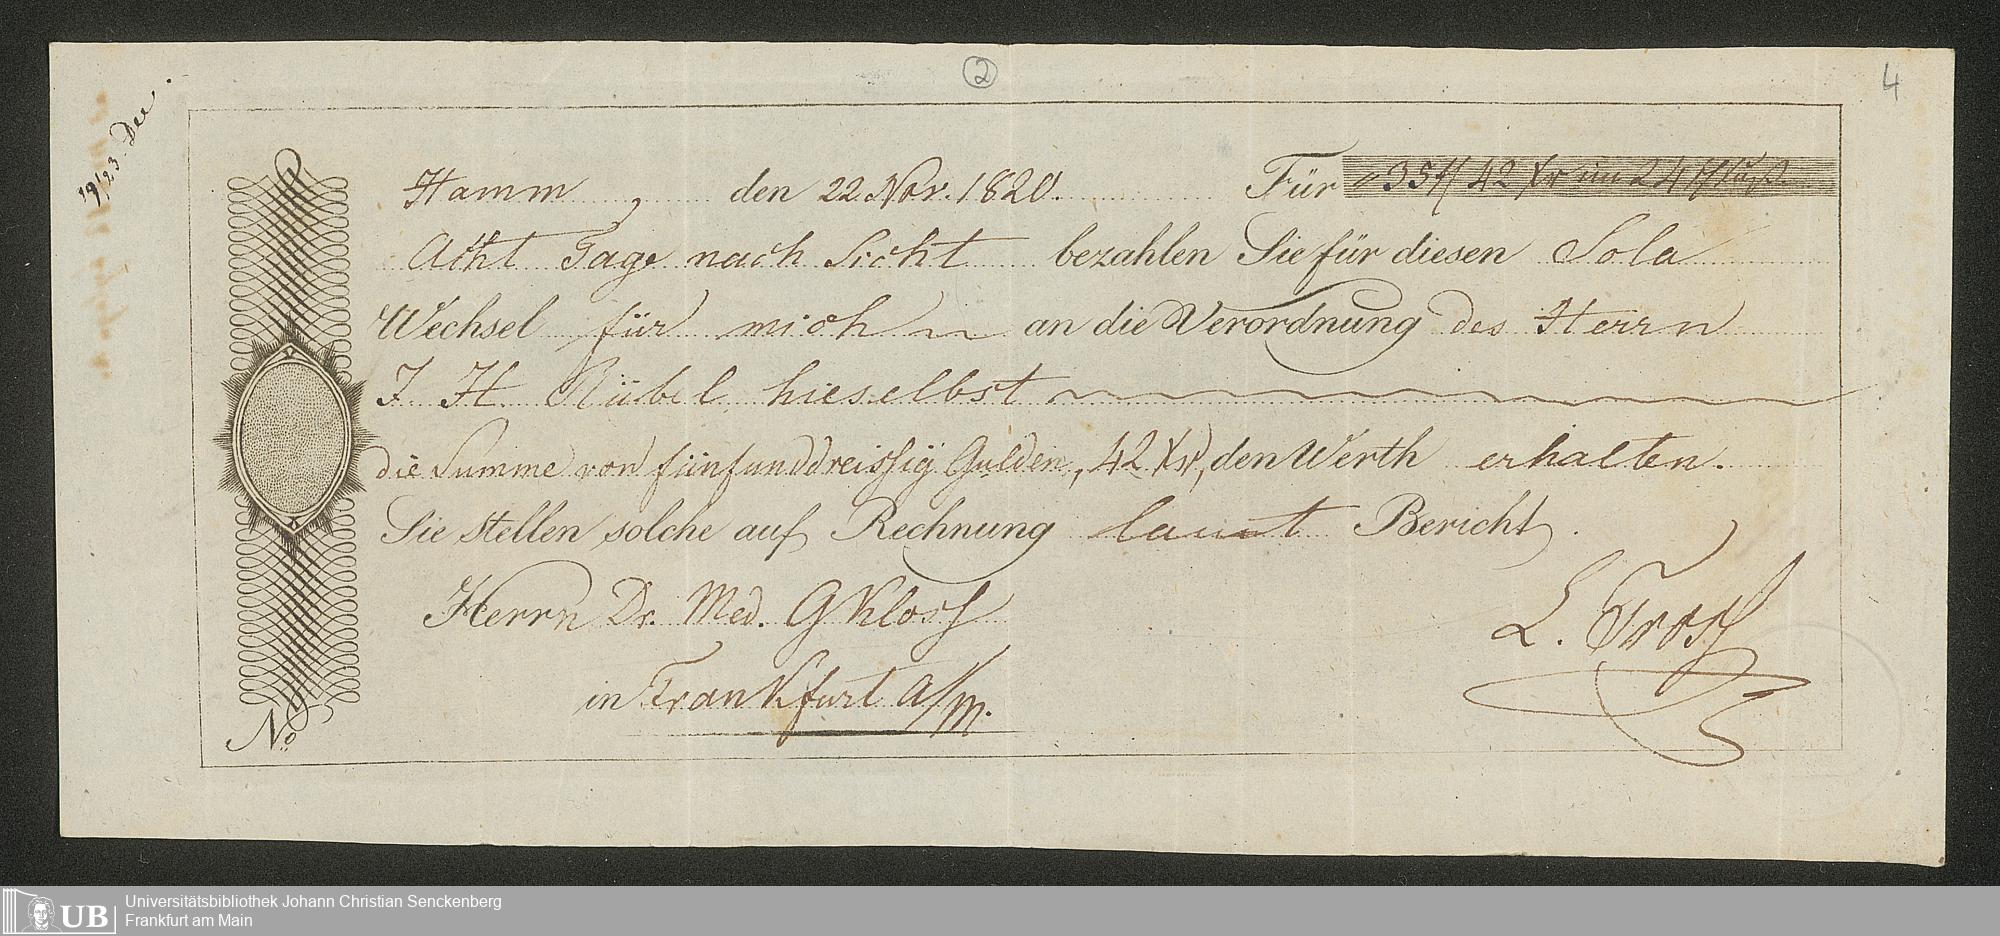 ②
4
19/23 Dec.
Hamm, den 22 Nov. 1820. Für 35 fl 42 Xr im 24 fl
Acht Tage nach Sicht bezahlen Sie für diesen Sola
Wechsel für mich an die Verordnung des Herrn
J. H. Nübel hieselbst
die Summe von fünfunddreissig Gulden, 42 Xr, den Werth erhalten.
Sie stellen solche auf Rechnung laut Bericht.
Herrn Dr. Med. G Kloss
L. Tross
in Frankfurt a/m.
No
UB
Universitätsbibliothek Johann Christian Senckenberg
Frankfurt am Main